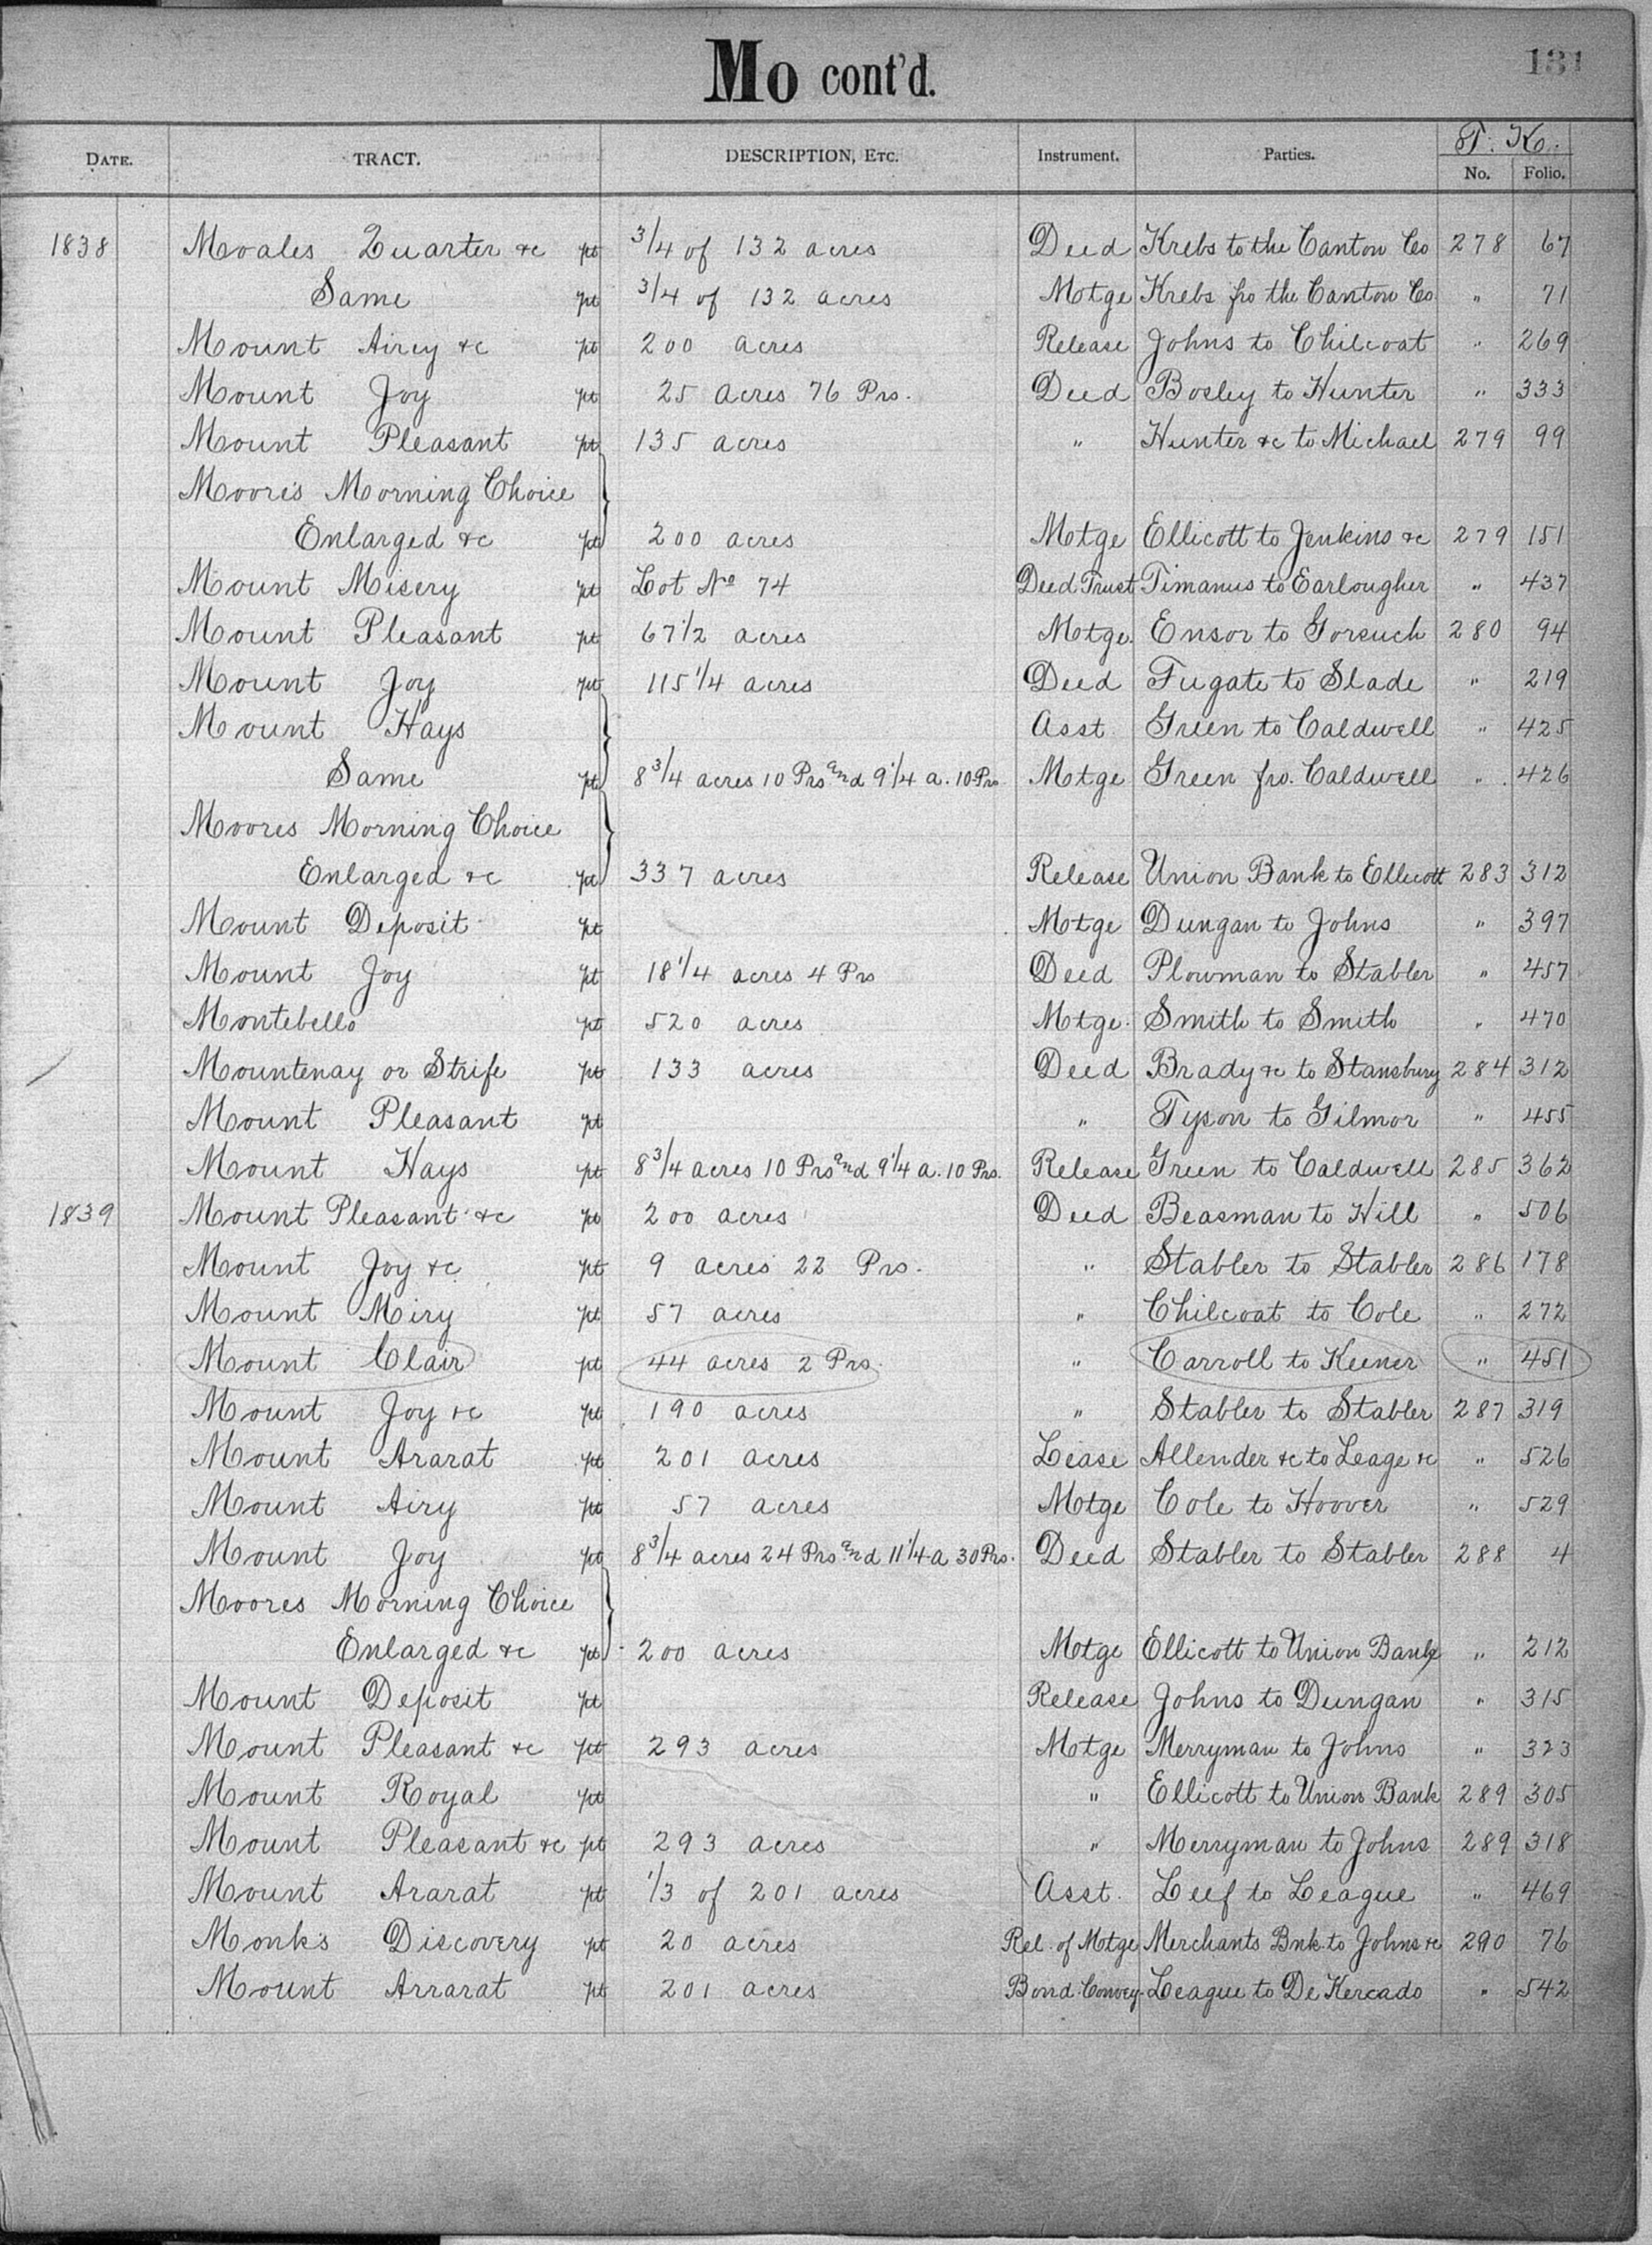 Mo cont'd.
131
DATE. TRACT. DESCRIPTION, ETC. Instrument. Parties. T. K. No. Folio.
1838 Moales Quarter &c pt 3/4 of 132 acres Deed Krebs to the Canton Co 278 67
Same pt 3/4 of 132 acres Motge Krebs fro the Canton Co " 71
Mount Airey &c pt 200 acres Release Johns to Chilcoat " 269
Mount Joy pt 25 acres 76 Prs. Deed Bosley to Hunter " 333
Mount Pleasant pt 135 acres " Hunter &c to Michael 279 99
Moore's Morning Choice
Enlarged &c pt 200 acres Motge Ellicott to Jenkins &c 279 151
Mount Misery pt Lot No 74 Deed Trust Timanus to Earlougher " 437
Mount Pleasant pt 67 1/2 acres Motge. Ensor to Gorsuch 280 94
Mount Joy pt 115 1/4 acres Deed Fugate to Slade " 219
Mount Hays Asst Green to Caldwell " 425
Same pt 8 3/4 acres 10 Prs and 9 1/4 a. 10 Prs Motge Green fro. Caldwell " 426
Moores Morning Choice
Enlarged &c pt 337 acres Release Union Bank to Ellicott 283 312
Mount Deposit pt Motge Dungan to Johns " 397
Mount Joy pt 18 1/4 acres 4 Prs Deed Plowman to Stabler " 457
Montebello pt 520 acres Motge. Smith to Smith " 470
Mountenay or Strife pt 133 acres Deed Brady &c to Stansbury 284 312
Mount Pleasant pt " Tyson to Gilmor " 455
Mount Hays pt 8 3/4 acres 10 Prs and 9 1/4 a. 10 Prs. Release Green to Caldwell 285 362
1839 Mount Pleasant &c pt 200 acres Deed Beasman to Hill " 506
Mount Joy &c pt 9 acres 22 Prs. " Stabler to Stabler 286 178
Mount Miry pt 57 acres " Chilcoat to Cole " 272
Mount Clair pt 44 acres 2 Prs. " Carroll to Keener " 451
Mount Joy &c pt 190 acres " Stabler to Stabler 287 319
Mount Ararat pt 201 acres Lease Allender &c to Leage &c " 526
Mount Airy pt 57 acres Motge Cole to Hoover " 529
Mount Joy pt 8 3/4 acres 24 Prs and 11 1/4 a 30 Prs. Deed Stabler to Stabler 288 4
Moores Morning Choice
Enlarged &c pt 200 acres Motge Ellicott to Union Bank " 212
Mount Deposit pt Release Johns to Dungan " 315
Mount Pleasant &c pt 293 acres Motge Merryman to Johns " 323
Mount Royal pt " Ellicott to Union Bank 289 305
Mount Pleasant &c pt 293 acres " Merryman to Johns 289 318
Mount Ararat pt 1/3 of 201 acres Asst. Leef to League " 469
Monk's Discovery pt 20 acres Rel. of Motge Merchants Bnk. to Johns &c 290 76
Mount Arrarat pt 201 acres Bond. Convey. League to De Kercado " 542